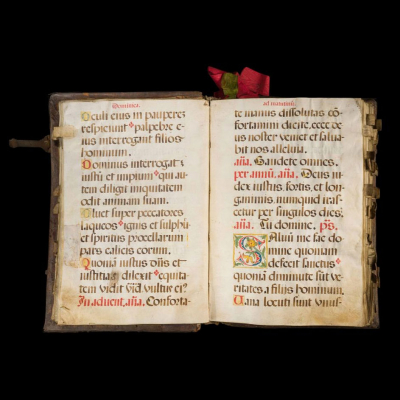 Dominica.
Oculi eius in pauperez
respiciunt palpebre e-
ius interrogant filios
hominum.
Dominus interrogat
iustū et impium qui au-
tem diligit iniquitatem
odit animam suam.
Pluet super peccatores
laqueos ignis et sulphu
et spiritus procellarum
pars calicis eorum.
Quoniā iustus dñs et
iustitiā dilexit equita-
tem vidit vultus ei?
In aduent. aña. Conforta-
ad nonam.
te manus dissolutas cō-
fortamini dicite. ecce de
us noster veniet et salua-
bit nos alleluia.
aña. Gaudete omnes.
per annū. aña. Deus iu-
dex iustus. fortis. et lon-
ganimis. numquid iras-
cetur per singulos dies.
aña. Tu domine. ps.
Saluū me fac do-
mine quoniam
defecit sanctus
quoniā diminute sūt ve-
ritates a filiis hominum.
Uana locuti sunt vnus-